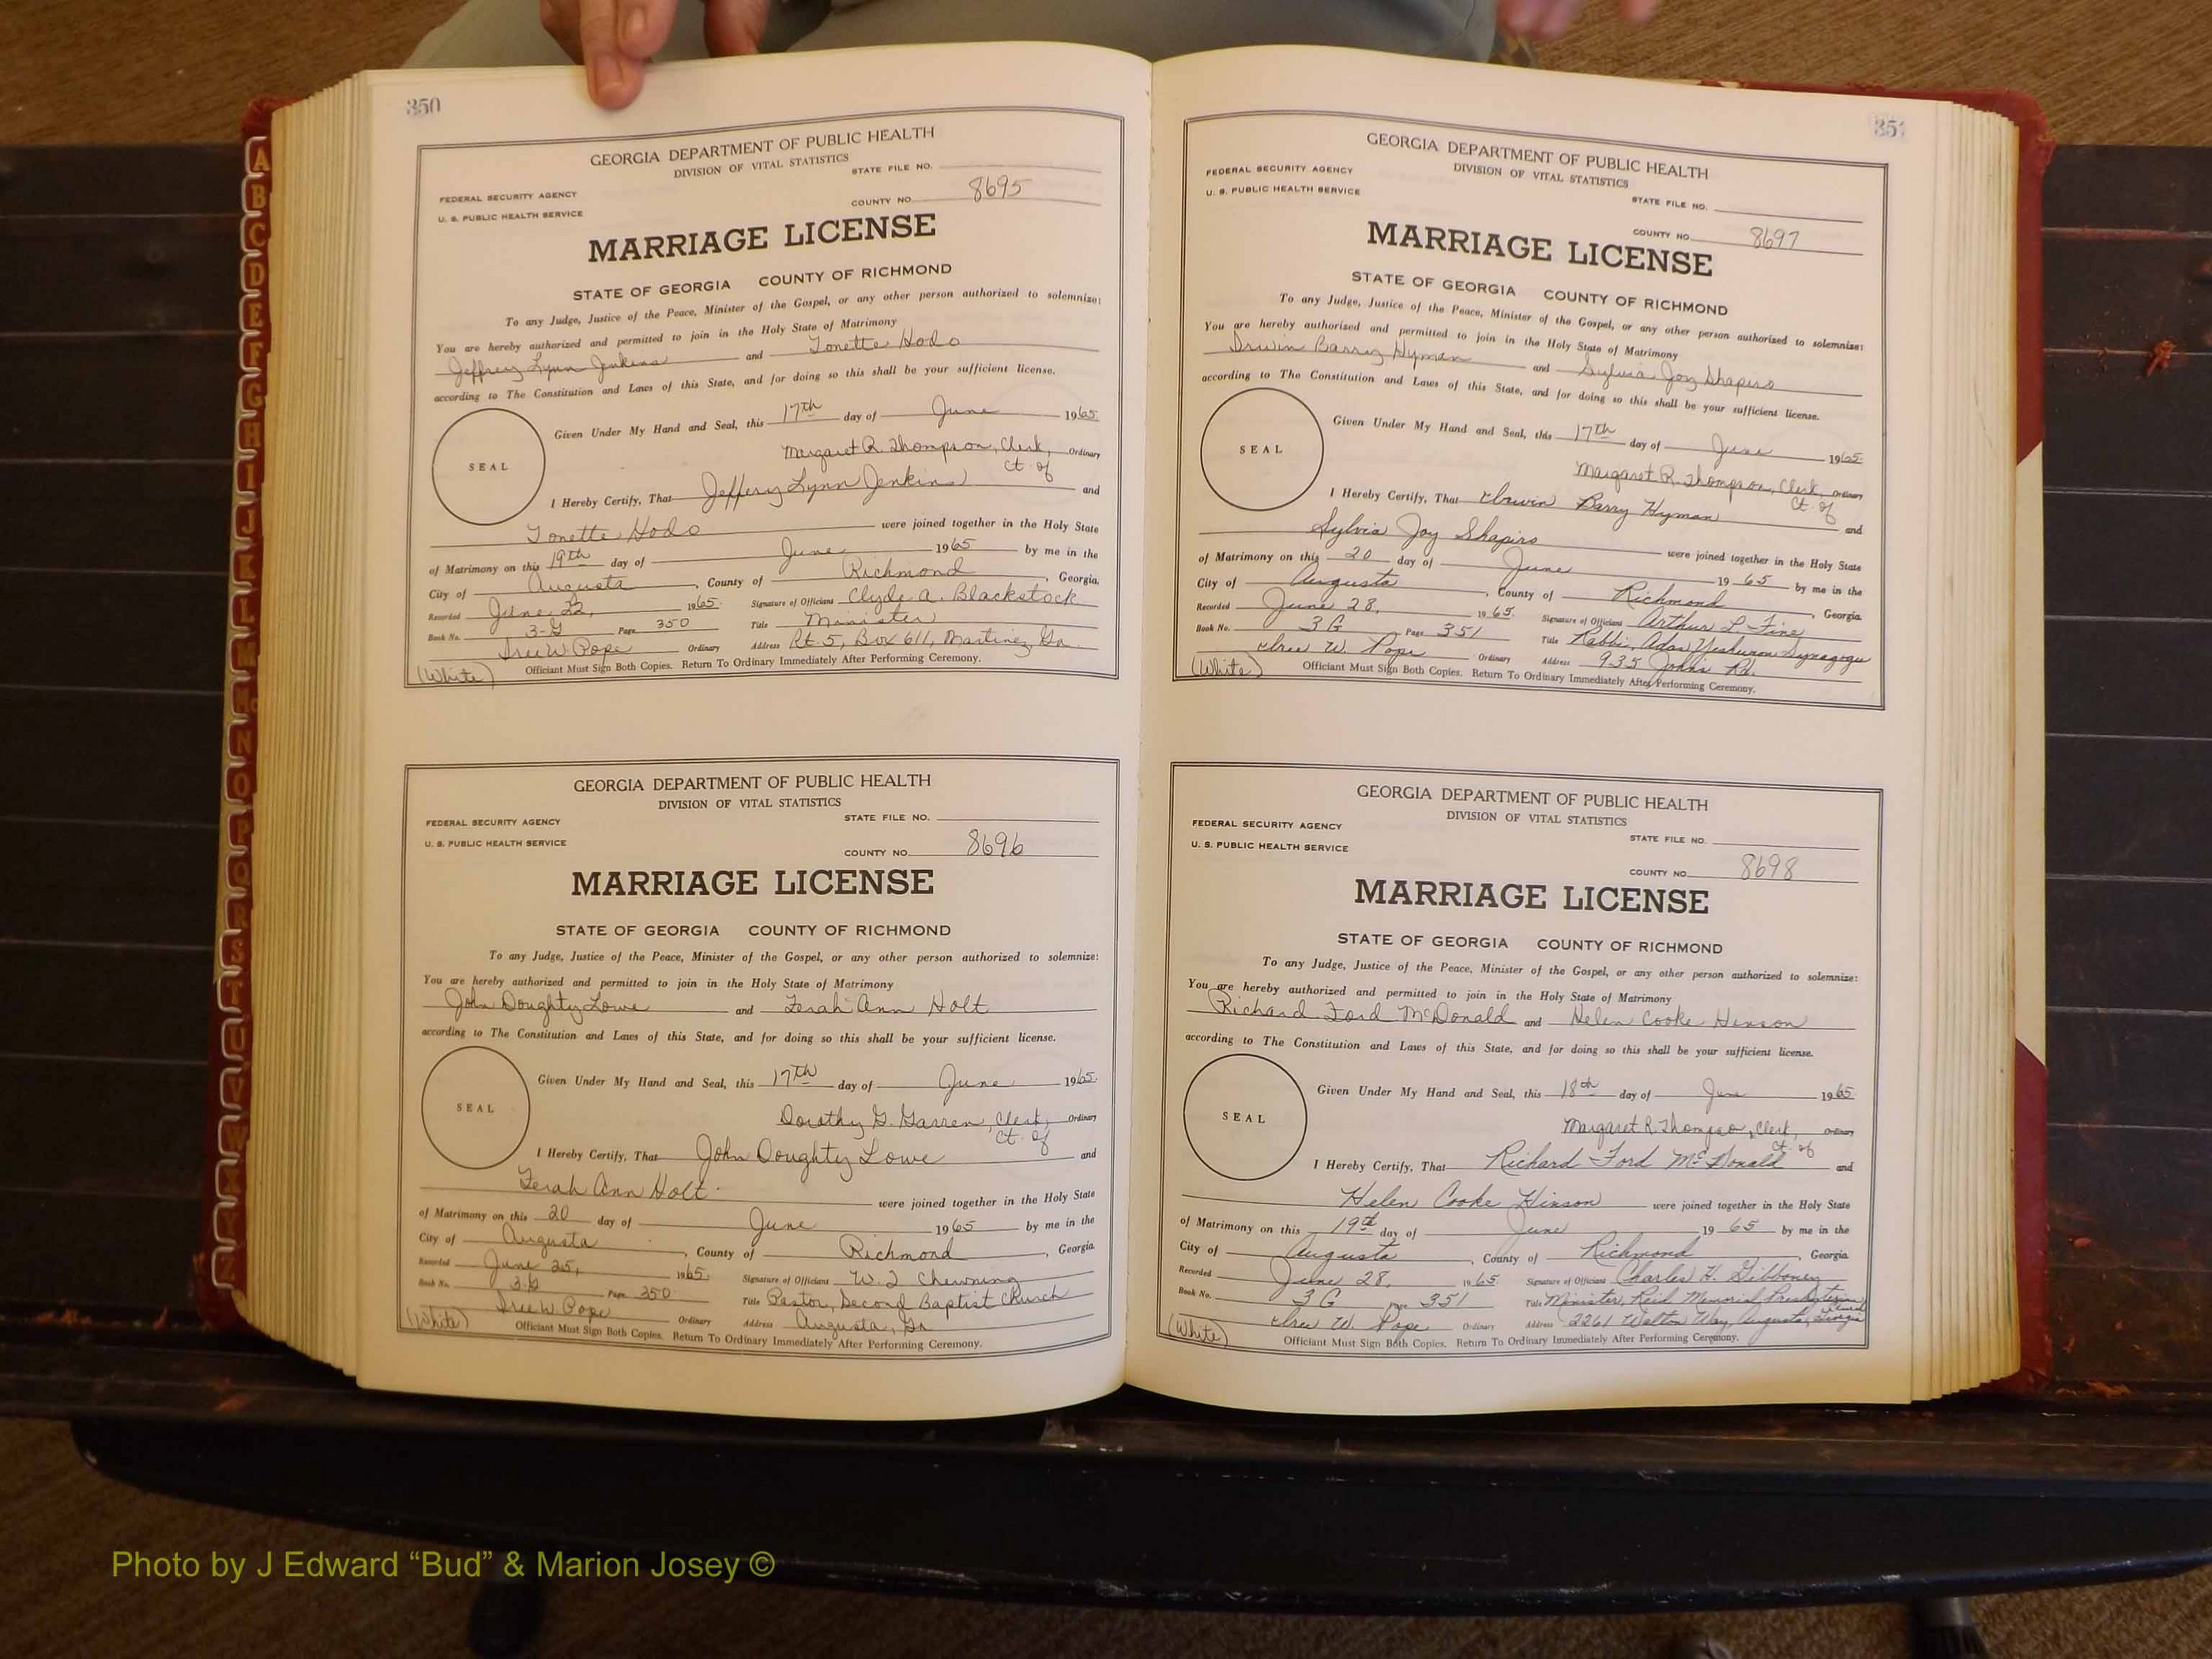 350
GEORGIA DEPARTMENT OF PUBLIC HEALTH
DIVISION OF VITAL STATISTICS
STATE FILE NO.
FEDERAL SECURITY AGENCY
U. S. PUBLIC HEALTH SERVICE
COUNTY NO. 8695
MARRIAGE LICENSE
STATE OF GEORGIA COUNTY OF RICHMOND
To any Judge, Justice of the Peace, Minister of the Gospel, or any other person authorized to solemnize:
You are hereby authorized and permitted to join in the Holy State of Matrimony
Jeffrey Lynn Jenkins and Tonette Hodo
according to The Constitution and Laws of this State, and for doing so this shall be your sufficient license.
SEAL
Given Under My Hand and Seal, this 17th day of June 1965
Margaret R. Thompson, Clerk, Ordinary
Ct. of
I Hereby Certify, That Jeffery Lynn Jenkins and
Tonette Hodo were joined together in the Holy State
of Matrimony on this 19th day of June 1965 by me in the
City of Augusta, County of Richmond, Georgia.
Recorded June 22, 1965. Signature of Officiant Clyde A. Blackstock
Book No. 3-G Page 350 Title Minister
W. Pope Ordinary Address Rt. 5, Box 611, Martinez, Ga.
(White) Officiant Must Sign Both Copies. Return To Ordinary Immediately After Performing Ceremony.
GEORGIA DEPARTMENT OF PUBLIC HEALTH
DIVISION OF VITAL STATISTICS
STATE FILE NO.
FEDERAL SECURITY AGENCY
U. S. PUBLIC HEALTH SERVICE
COUNTY NO. 8696
MARRIAGE LICENSE
STATE OF GEORGIA COUNTY OF RICHMOND
To any Judge, Justice of the Peace, Minister of the Gospel, or any other person authorized to solemnize:
You are hereby authorized and permitted to join in the Holy State of Matrimony
John Doughty Lowe and Ferah Ann Holt
according to The Constitution and Laws of this State, and for doing so this shall be your sufficient license.
SEAL
Given Under My Hand and Seal, this 17th day of June 1965.
Dorothy G. Garren, Clerk, Ordinary
Ct. of
I Hereby Certify, That John Doughty Lowe and
Ferah Ann Holt were joined together in the Holy State
of Matrimony on this 20 day of June 1965 by me in the
City of Augusta, County of Richmond, Georgia
Recorded June 25, 1965. Signature of Officiant W. J. Chewning
Book No. 3-G Page 350 Title Pastor, Second Baptist Church
W. Pope Ordinary Address Augusta, Ga
(White) Officiant Must Sign Both Copies. Return To Ordinary Immediately After Performing Ceremony.
351
GEORGIA DEPARTMENT OF PUBLIC HEALTH
DIVISION OF VITAL STATISTICS
FEDERAL SECURITY AGENCY
U. S. PUBLIC HEALTH SERVICE
STATE FILE NO.
COUNTY NO. 8697
MARRIAGE LICENSE
STATE OF GEORGIA COUNTY OF RICHMOND
To any Judge, Justice of the Peace, Minister of the Gospel, or any other person authorized to solemnize:
You are hereby authorized and permitted to join in the Holy State of Matrimony
Irwin Barry Hyman and Sylvia Joy Shapiro
according to The Constitution and Laws of this State, and for doing so this shall be your sufficient license.
SEAL
Given Under My Hand and Seal, this 17th day of June 1965.
Margaret R. Thompson, Clerk, Ordinary
Ct. of
I Hereby Certify, That Irwin Barry Hyman and
Sylvia Joy Shapiro were joined together in the Holy State
of Matrimony on this 20 day of June 1965 by me in the
City of Augusta, County of Richmond, Georgia.
Recorded June 28, 1965. Signature of Officiant Arthur L. Fine
Book No. 3G Page 351 Title Rabbi, Adas Yeshurun Synagogue
W. Pope Ordinary Address 935 Johns Rd.
(White) Officiant Must Sign Both Copies. Return To Ordinary Immediately After Performing Ceremony.
GEORGIA DEPARTMENT OF PUBLIC HEALTH
DIVISION OF VITAL STATISTICS
FEDERAL SECURITY AGENCY
STATE FILE NO.
U. S. PUBLIC HEALTH SERVICE
COUNTY NO. 8698
MARRIAGE LICENSE
STATE OF GEORGIA COUNTY OF RICHMOND
To any Judge, Justice of the Peace, Minister of the Gospel, or any other person authorized to solemnize:
You are hereby authorized and permitted to join in the Holy State of Matrimony
Richard Ford McDonald and Helen Cooke Hinson
according to The Constitution and Laws of this State, and for doing so this shall be your sufficient license.
SEAL
Given Under My Hand and Seal, this 18th day of June 1965.
Margaret R. Thompson, Clerk, Ordinary
Ct. of
I Hereby Certify, That Richard Ford McDonald and
Helen Cooke Hinson were joined together in the Holy State
of Matrimony on this 19th day of June 1965 by me in the
City of Augusta, County of Richmond, Georgia
Recorded June 28, 1965. Signature of Officiant Charles H. Gibboney
Book No. 3G Page 351 Title Minister, Reid Memorial Presbyterian Church
W. Pope Ordinary Address 2261 Walton Way, Augusta, Georgia
(White) Officiant Must Sign Both Copies. Return To Ordinary Immediately After Performing Ceremony.
A
B
C
D
E
F
G
H
I
J
K
L
M
Mc
N
O
P
Q
R
S
T
U
V
W
X
Y
Z
Photo by J Edward “Bud” & Marion Josey ©